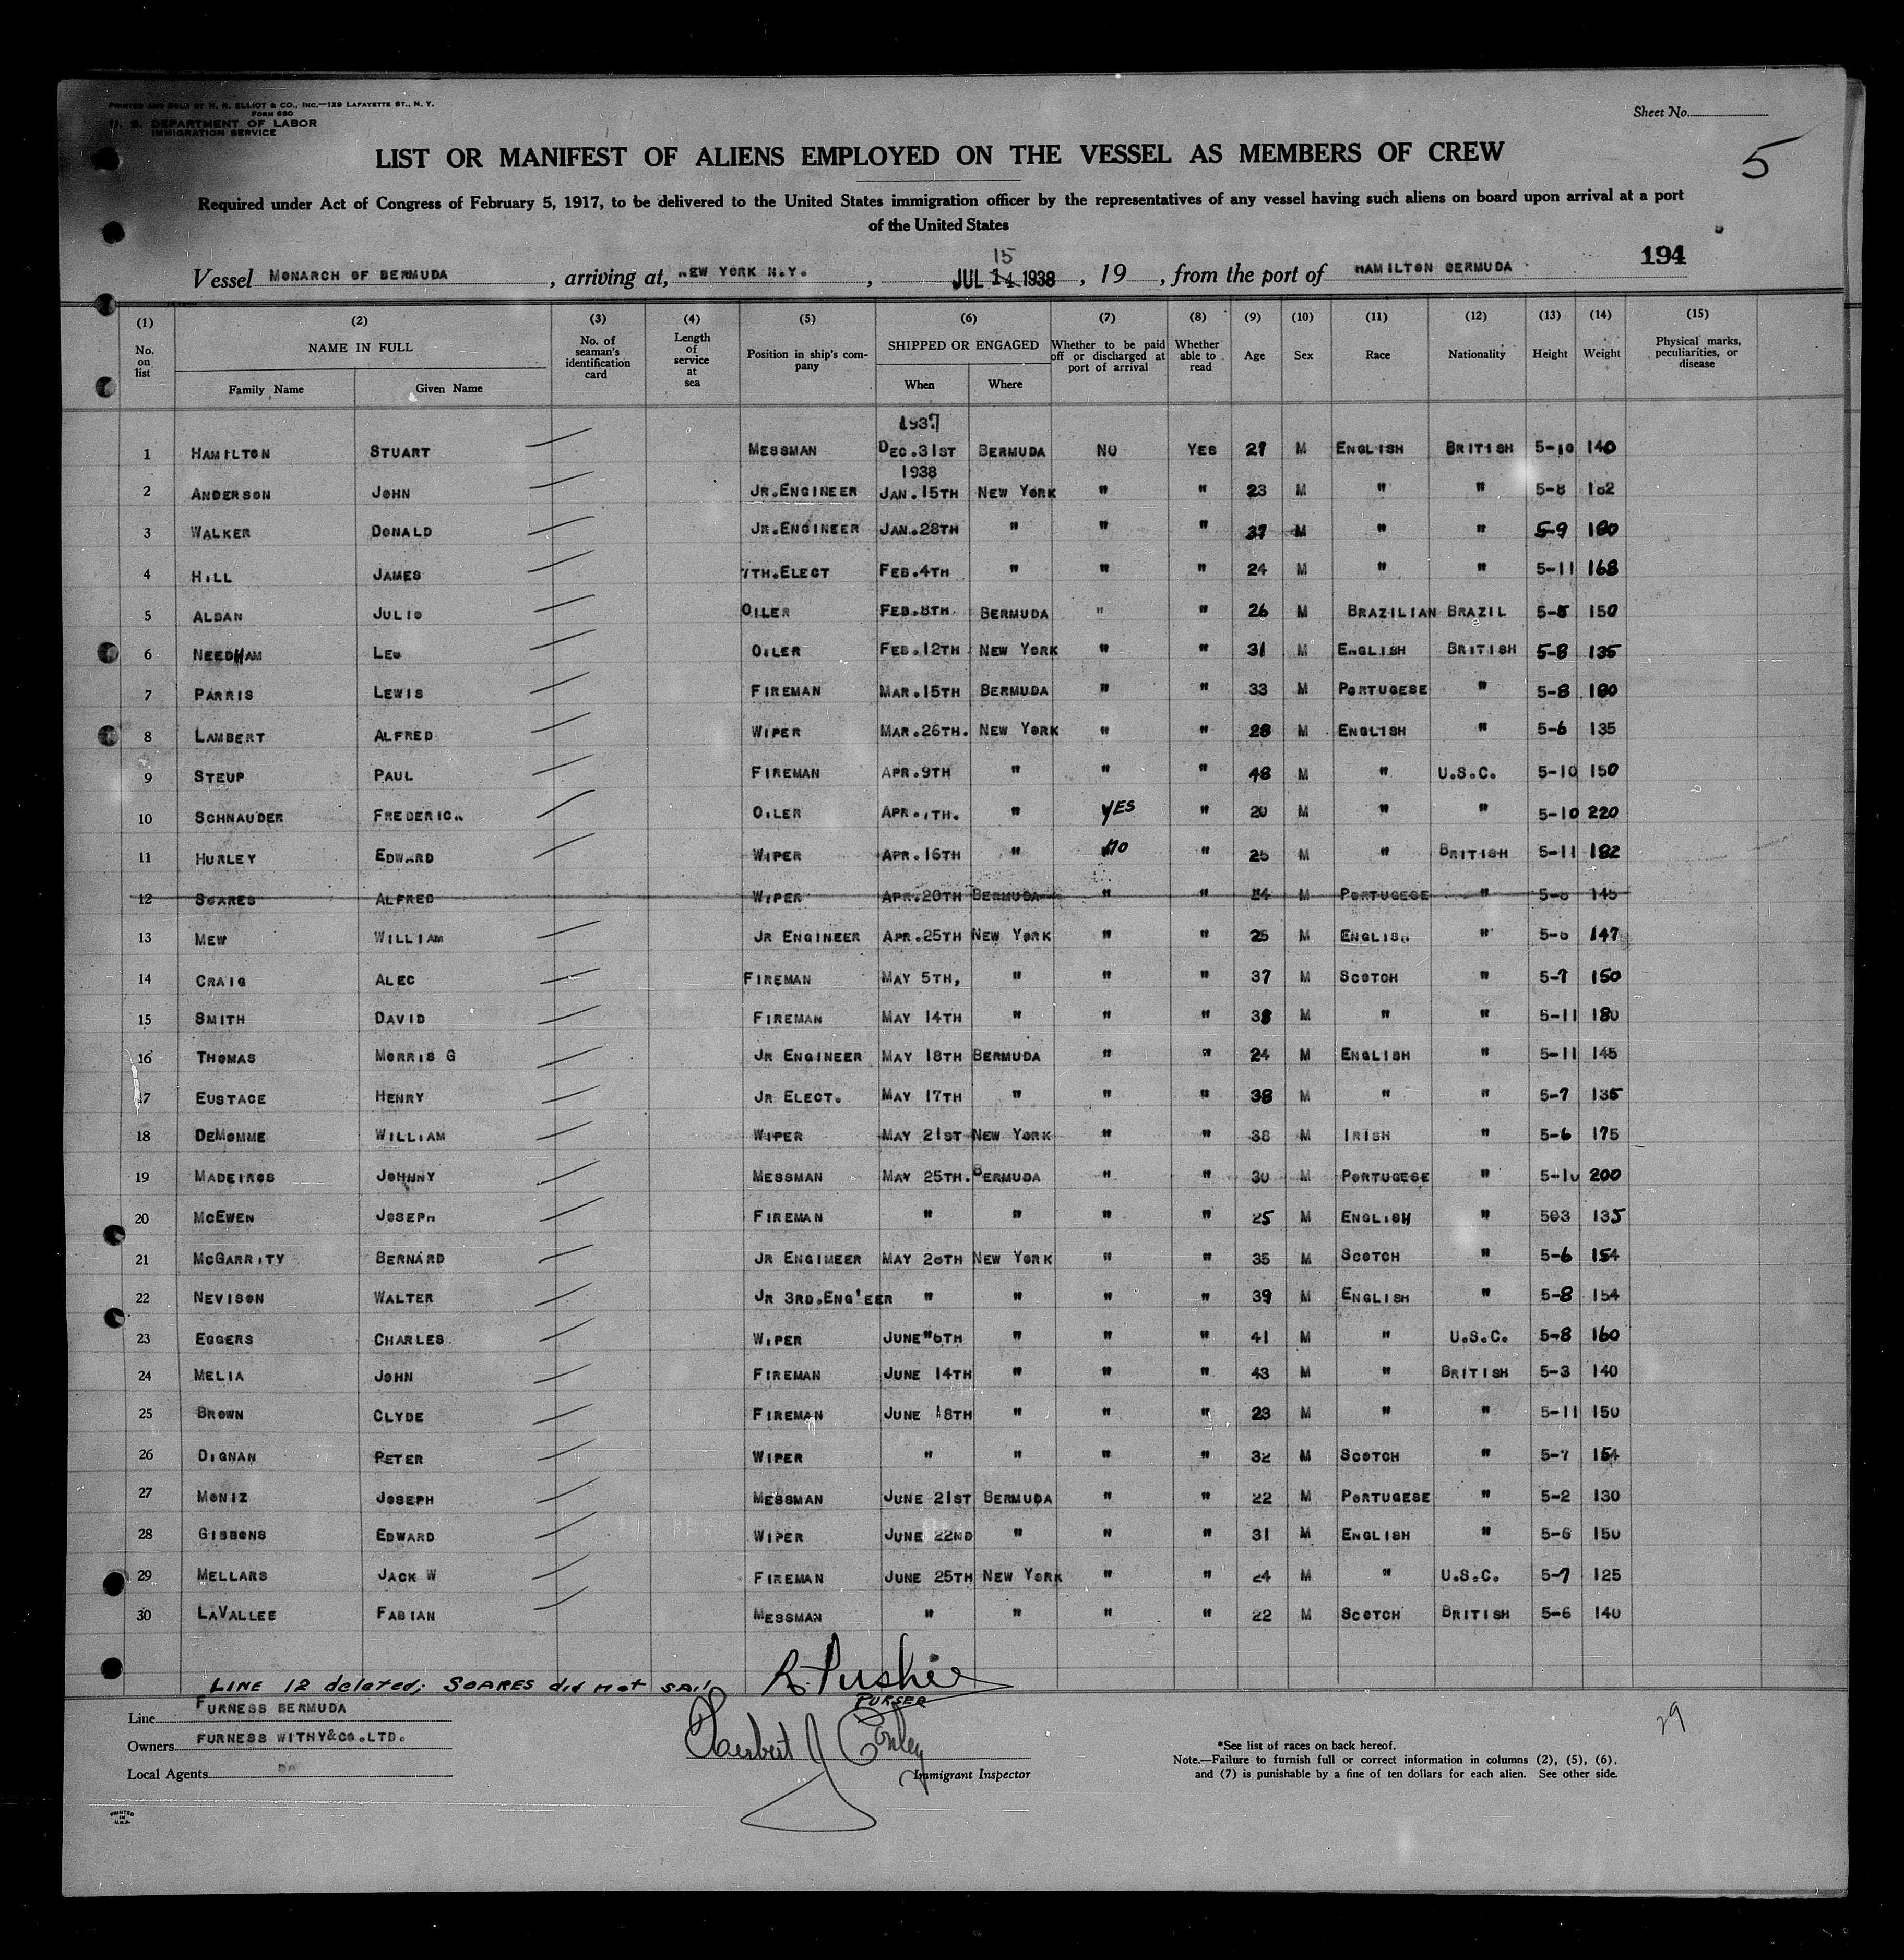 PRINTED AND SOLD BY H. R. ELLIOT & CO., INC.—129 LAFAYETTE ST., N. Y.
FORM 680
U. S. DEPARTMENT OF LABOR
IMMIGRATION SERVICE
Sheet No.
5
LIST OR MANIFEST OF ALIENS EMPLOYED ON THE VESSEL AS MEMBERS OF CREW
Required under Act of Congress of February 5, 1917, to be delivered to the United States immigration officer by the representatives of any vessel having such aliens on board upon arrival at a port
of the United States
194
15
Vessel MONARCH OF BERMUDA, arriving at, NEW YORK N.Y., JUL 14 1938, 19 , from the port of HAMILTON BERMUDA
(1) (2) (3) (4) (5) (6) (7) (8) (9) (10) (11) (12) (13) (14) (15)
No. on list NAME IN FULL Family Name Given Name No. of seaman's identification card Length of service at sea Position in ship's company SHIPPED OR ENGAGED When Where Whether to be paid off or discharged at port of arrival Whether able to read Age Sex Race Nationality Height Weight Physical marks, peculiarities, or disease
1937
1 HAMILTON STUART MESSMAN DEC.31ST BERMUDA NO YES 27 M ENGLISH BRITISH 5-10 140
1938
2 ANDERSON JOHN JR.ENGINEER JAN.15TH NEW YORK " " 23 M " " 5-8 162
3 WALKER DONALD JR.ENGINEER JAN.28TH " " " 37 M " " 5-9 180
4 HILL JAMES 7TH.ELECT FEB.4TH " " " 24 M " " 5-11 168
5 ALBAN JULIO OILER FEB.8TH. BERMUDA " " 26 M BRAZILIAN BRAZIL 5-5 150
6 NEEDHAM LEO OILER FEB.12TH NEW YORK " " 31 M ENGLISH BRITISH 5-8 135
7 PARRIS LEWIS FIREMAN MAR.15TH BERMUDA " " 33 M PORTUGESE " 5-8 180
8 LAMBERT ALFRED WIPER MAR.26TH. NEW YORK " " 28 M ENGLISH " 5-6 135
9 STEUP PAUL FIREMAN APR.9TH " " " 48 M " U.S.C. 5-10 150
10 SCHNAUDER FREDERICK OILER APR. TH. " YES " 20 M " " 5-10 220
11 HURLEY EDWARD WIPER APR.16TH " NO " 25 M " BRITISH 5-11 182
12 SOARES ALFRED WIPER APR.20TH BERMUDA " " 24 M PORTUGESE " 145
13 MEW WILLIAM JR ENGINEER APR.25TH NEW YORK " " 25 M ENGLISH " 147
14 CRAIG ALEC FIREMAN MAY 5TH, " " " 37 M SCOTCH " 5-7 150
15 SMITH DAVID FIREMAN MAY 14TH " " " 38 M " " 5-11 180
16 THOMAS MORRIS G JR ENGINEER MAY 18TH BERMUDA " " 24 M ENGLISH " 5-11 145
17 EUSTACE HENRY JR ELECT. MAY 17TH " " " 38 M " " 5-7 135
18 DEMOMME WILLIAM WIPER MAY 21ST NEW YORK " " 38 M IRISH " 5-6 175
19 MADEIROS JOHNNY MESSMAN MAY 25TH. BERMUDA " " 30 M PORTUGESE " 5-10 200
20 MCEWEN JOSEPH FIREMAN " " " " 25 M ENGLISH " 503 135
21 MCGARRITY BERNARD JR ENGINEER MAY NEW YORK " " 35 M SCOTCH " 5-6 154
22 NEVISON WALTER JR 3RD.ENG'EER " " " " 39 M ENGLISH " 5-8 154
23 EGGERS CHARLES WIPER JUNE " " " 41 M " U.S.C. 5-8 160
24 MELIA JOHN FIREMAN JUNE 14TH " " " 43 M " BRITISH 5-3 140
25 BROWN CLYDE FIREMAN JUNE 18TH " " " 23 M " " 5-11 150
26 DIGNAN PETER WIPER " " " " 32 M SCOTCH " 5-7 154
27 MONIZ JOSEPH MESSMAN JUNE 21ST BERMUDA " " 22 M PORTUGESE " 5-2 130
28 GIBBONS EDWARD WIPER JUNE 22ND " " " 31 M ENGLISH " 5-6 150
29 MELLARS JACK W FIREMAN JUNE 25TH NEW YORK " " 24 M " U.S.C. 5-7 125
30 LAVALLEE FABIAN MESSMAN " " " " 22 M SCOTCH BRITISH 5-6 140
LINE 12 deleted; SOARES did not sail
PURSER
Line FURNESS BERMUDA
Owners FURNESS WITHY&CO.LTD.
Local Agents DO
Herbert J Conley
Immigrant Inspector
29
*See list of races on back hereof.
Note.—Failure to furnish full or correct information in columns (2), (5), (6),
and (7) is punishable by a fine of ten dollars for each alien. See other side.
PRINTED
IN
U.S.A.